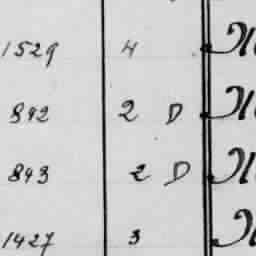 1529 4
892 2 D
893 2 D
1427 3